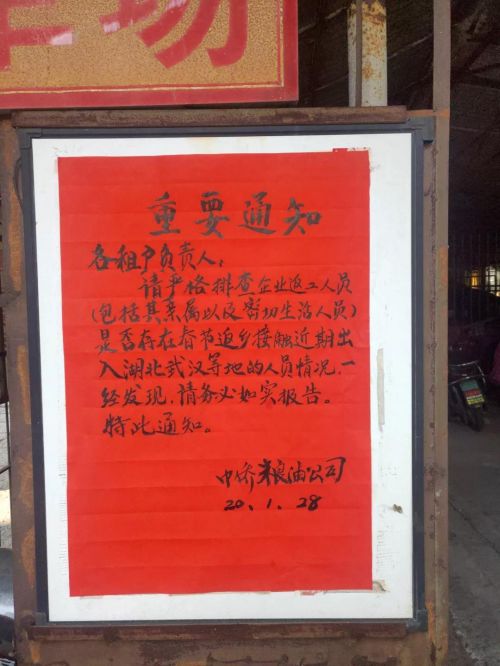 车场
重要通知
各租户负责人：
请严格排查企业返工人员
(包括其亲属以及密切生活人员)
是否存在春节返乡接触近期出
入湖北武汉等地的人员情况，一
经发现，请务必如实报告。
特此通知。
中侨粮油公司
20.1.28